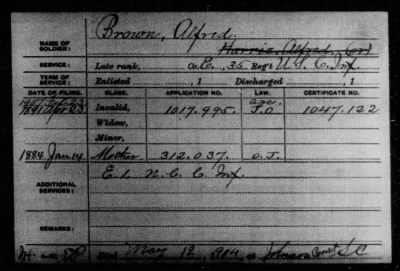 Brown, Alfred.
NAME OF SOLDIER: Harris, Alfred, (or)
SERVICE: Late rank, Co. E, 35 Reg't U.S.C. Inf.
TERM OF SERVICE: Enlisted , 1 Discharged , 1
DATE OF FILING. CLASS. APPLICATION NO. LAW. CERTIFICATE NO.
1891 Apr 23 Invalid, 1017.995. 1047.122
Widow,
Minor,
1884 Jan 14 Mother 312.037. O.J.
ADDITIONAL SERVICES: E. 1. N.C.C. Inf.
REMARKS:
Died May 12, 1914, at Johnson S C